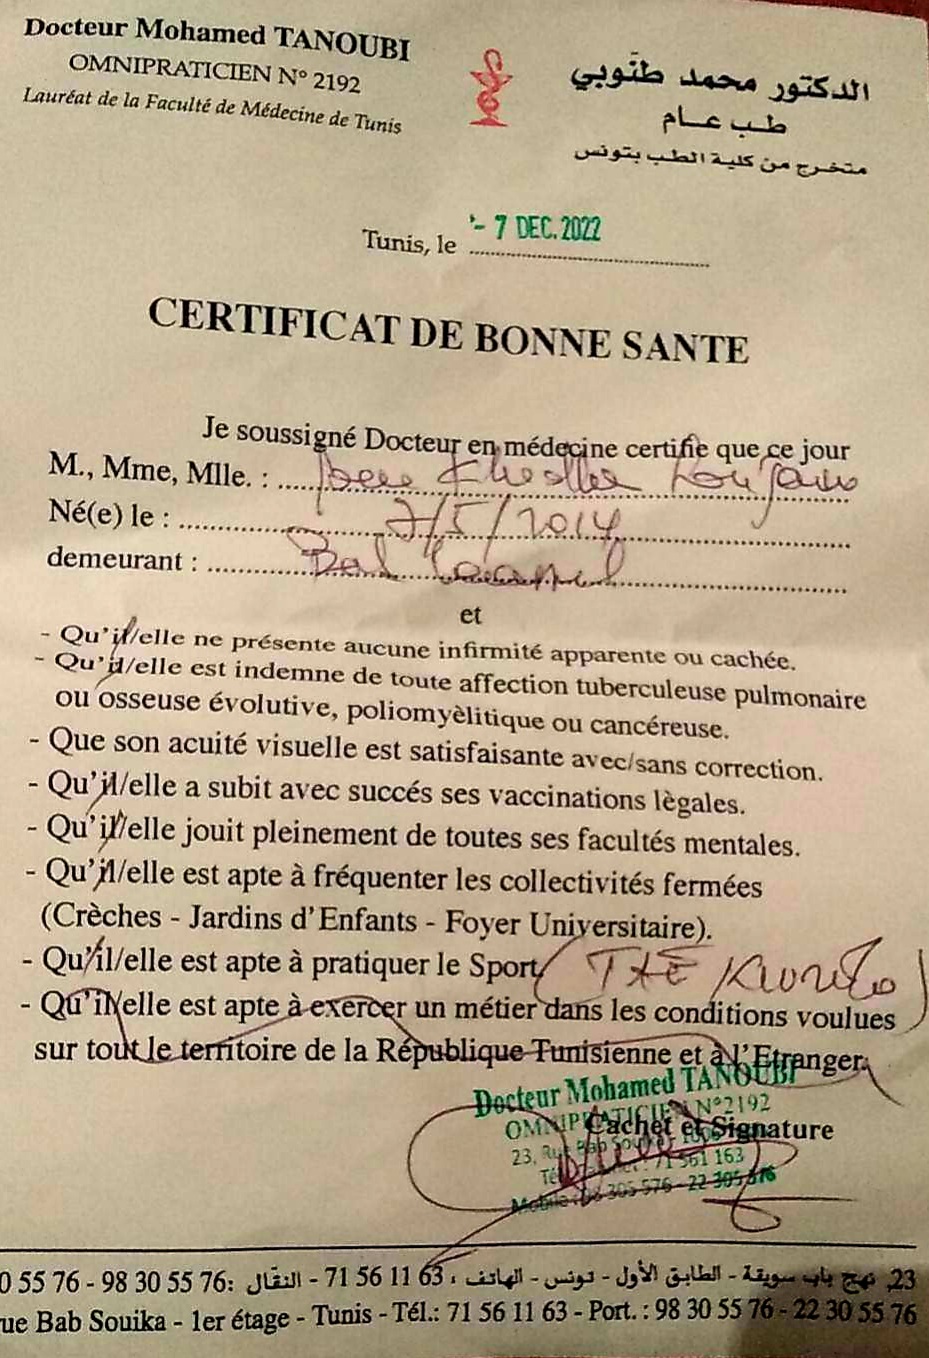 Docteur Mohamed TANOUBI
OMNIPRATICIEN N° 2192
Lauréat de la Faculté de Médecine de Tunis
الدكتور محمد طنّوبي
طب عام
متخرج من كلية الطب بتونس
Tunis, le - 7 DEC. 2022
CERTIFICAT DE BONNE SANTE
Je soussigné Docteur en médecine certifie que ce jour
M., Mme, Mlle. :
Né(e) le : 7/5/2014
demeurant :
et
- Qu'il/elle ne présente aucune infirmité apparente ou cachée.
- Qu'il/elle est indemne de toute affection tuberculeuse pulmonaire
ou osseuse évolutive, poliomyèlitique ou cancéreuse.
- Que son acuité visuelle est satisfaisante avec/sans correction.
- Qu'il/elle a subit avec succés ses vaccinations lègales.
- Qu'il/elle jouit pleinement de toutes ses facultés mentales.
- Qu'il/elle est apte à fréquenter les collectivités fermées
(Crèches - Jardins d'Enfants - Foyer Universitaire).
- Qu'il/elle est apte à pratiquer le Sport
- Qu'il/elle est apte à exercer un métier dans les conditions voulues
sur tout le territoire de la République Tunisienne et à l'Etranger.
Docteur Mohamed TANOUBI
OMNIPRATICIEN N°2192
Cachet et Signature
23, Rue Bab Souika
71 561 163
Mobile : 98 305 576 - 22 305 576
23 نهج باب سويقة - الطابق الأول - تونس - الهاتف : 63 11 56 71 - النقال : 76 55 30 98 - 76 55 0
ue Bab Souika - 1er étage - Tunis - Tél.: 71 56 11 63 - Port. : 98 30 55 76 - 22 30 55 76